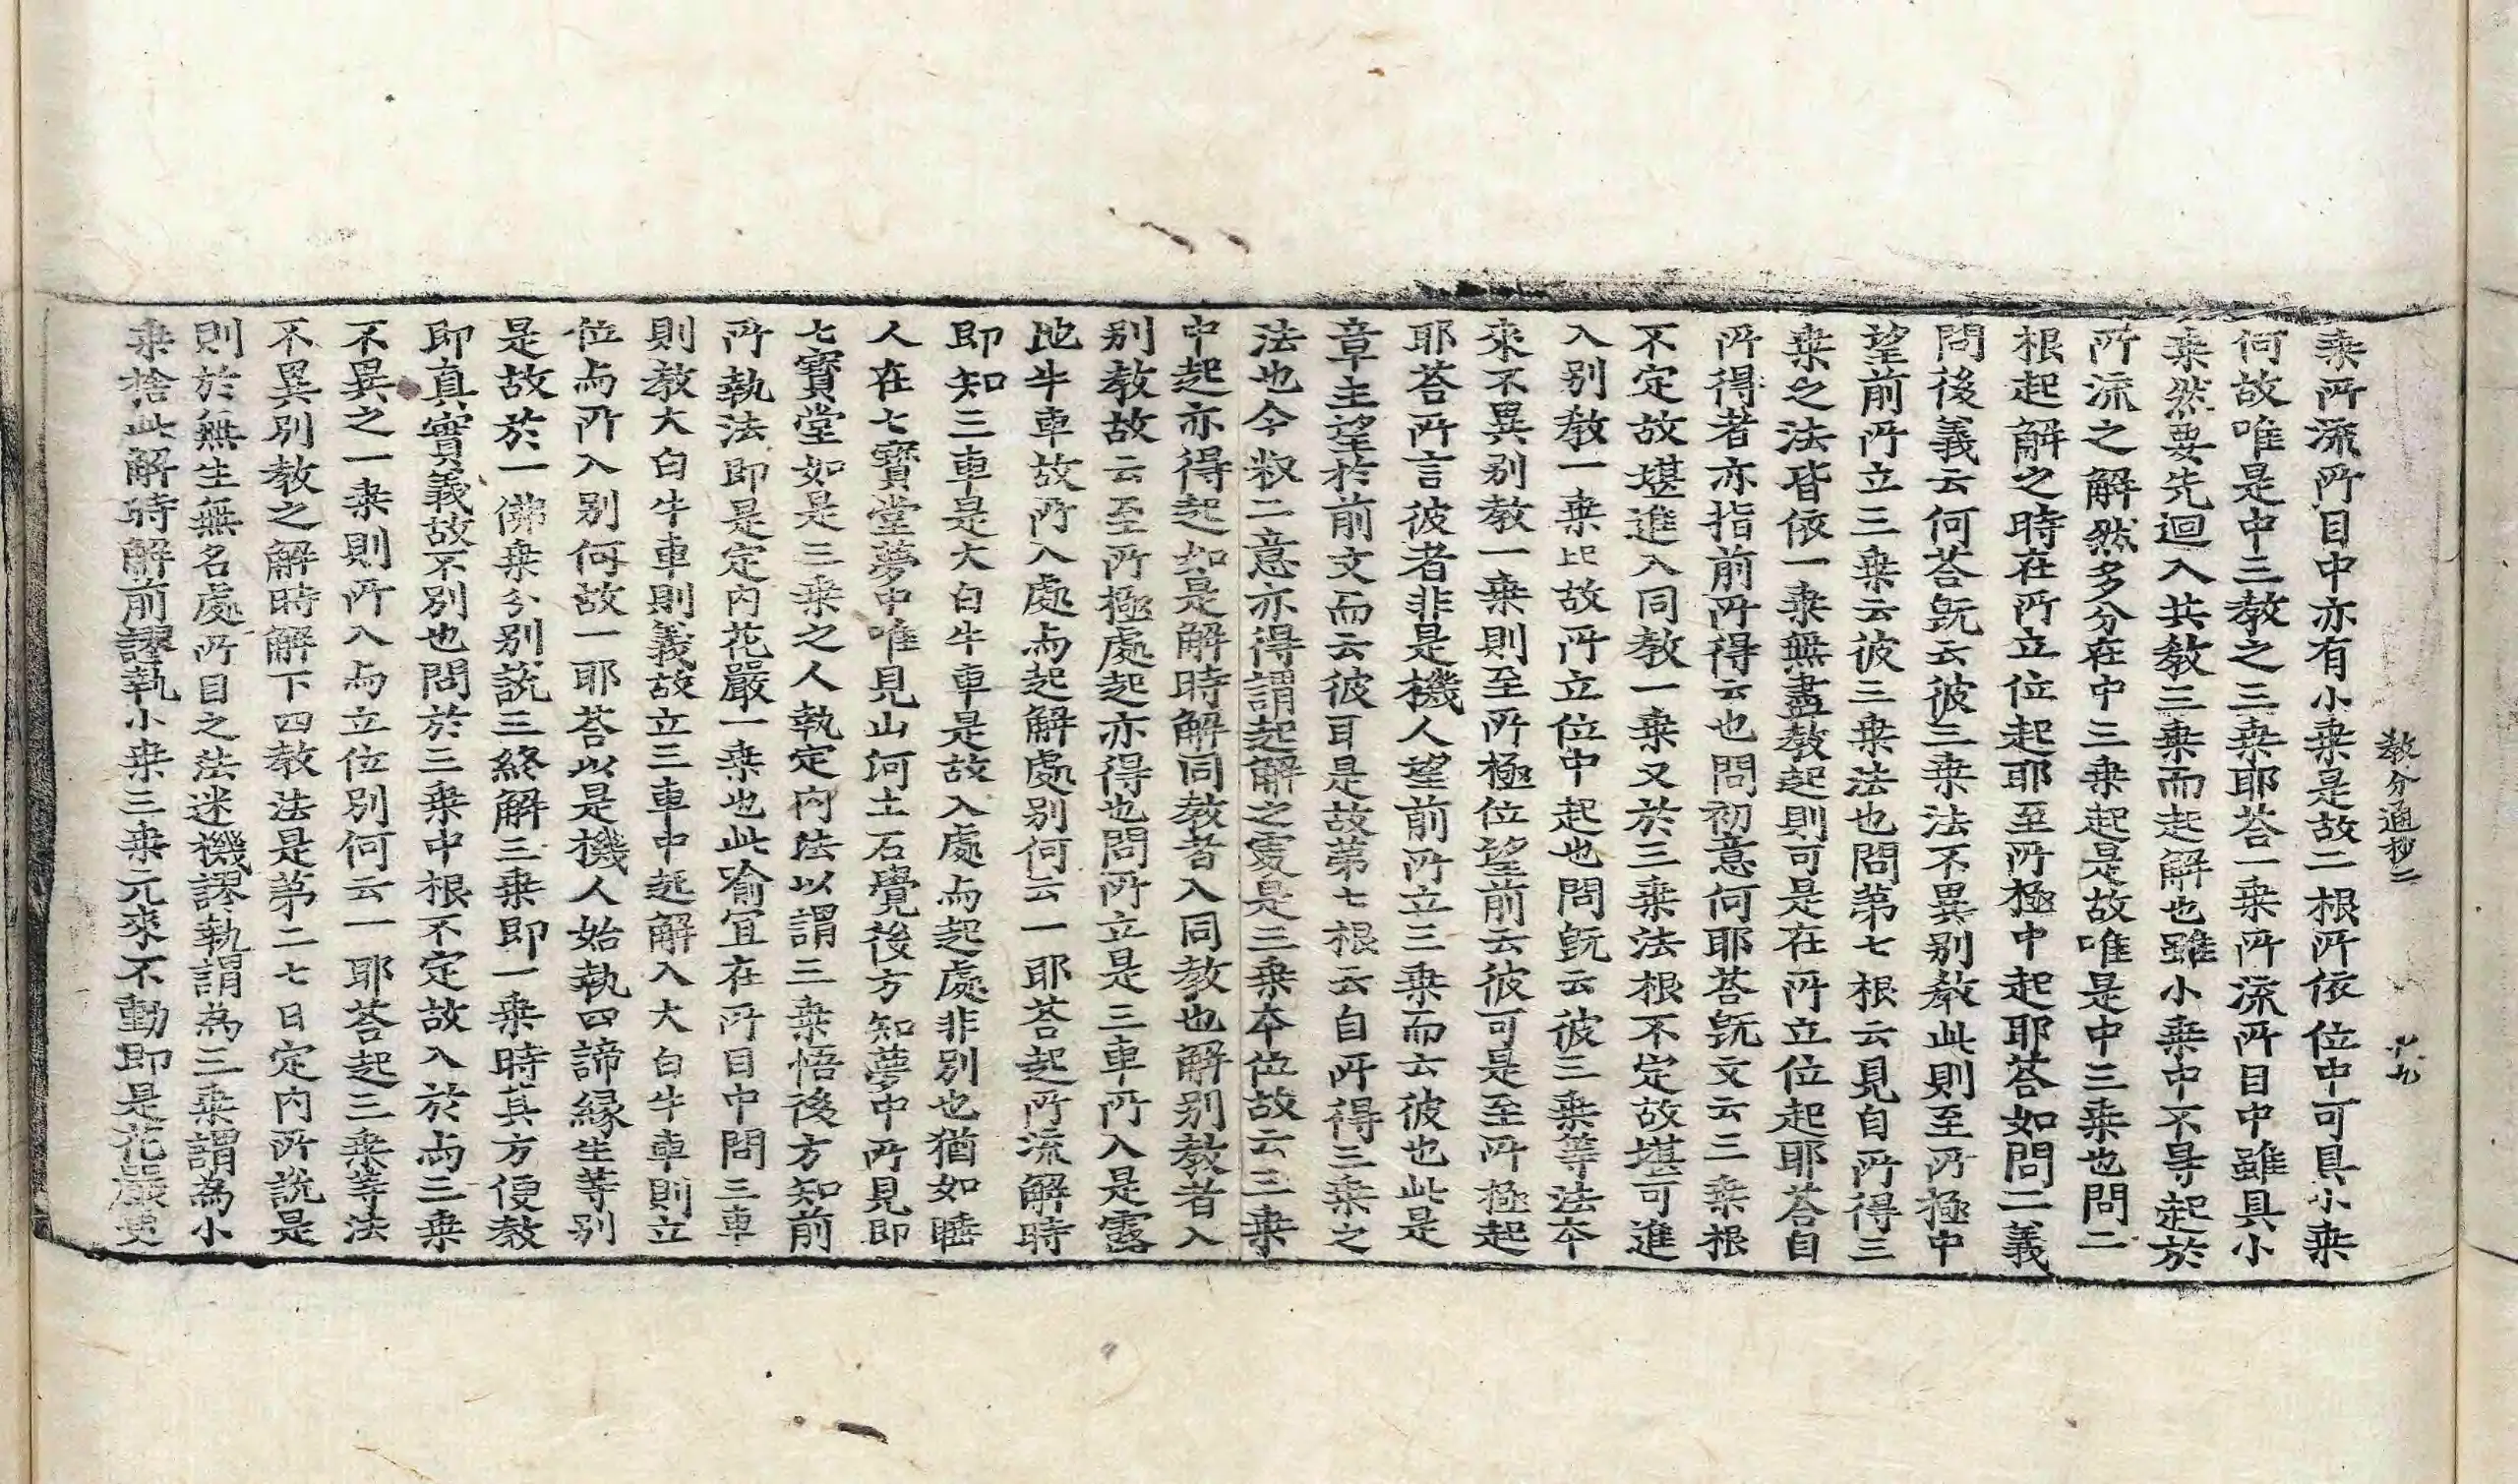 教分通抄二　　　十九
乗所流所目中亦有小乗是故二根所依位中可具小乗
何故唯是中三教之三乗耶荅一乗所流所目中雖具小
乗然要先迴入共教三乗而起解也雖小乗中不㝵起於
所流之解然多分在中三乗起是故唯是中三乗也問二
根起解之時在所立位起耶至所極中起耶荅如問二義
問後義云何荅旣云彼三乗法不異別教此則至所極中
望前所立三乗云彼三乗法也問第七根云見自所得三
乗之法皆依一乗無盡教起則可是在所立位起耶荅自
所得者亦指前所得云也問初意何耶荅旣文云三乗根
不定故堪進入同教一乗又於三乗法根不定故堪可進
入別教一乗比故所立位中起也問旣云彼三乗等法本
來不異別教一乗則至所極位望前云彼可是至所極起
耶荅所言彼者非是機人望前所立三乗而云彼也此是
章主望於前文而云彼耳是故第七根云自所得三乗之
法也今叙二意亦得謂起解之處是三乗本位故云三乗
中起亦得起如是解時解同教者入同教也解別教者入
別教故云至所極處起亦得也問所立是三車所入是露
地牛車故所入處与起解處別何云一耶荅起所流解時
即知三車是大白牛車是故入處与起處非別也猶如睡
人在七寳堂夢中唯見山河土石覺後方知夢中所見即
七寳堂如是三乗之人執定内法以謂三乗悟後方知前
所執法即是定内花嚴一乗也此喻冝在所目中問三車
則教大白牛車則義故立三車中起解入大白牛車則立
位与所入別何故一耶荅以是機人始執四諦縁生等別
是故於一佛乗分別說三終解三乗即一乗時其方便教
即真實義故不別也問於三乗中根不定故入於与三乗
不異之一乗則所入与立位別何云一耶荅起三乗等法
不異別教之解時解下四教法是第二七日定内所說是
則於無生無名處所目之法迷機謬執謂為三乗謂為小
乗捨此解時解前謬執小乗三乗元來不動即是花嚴更